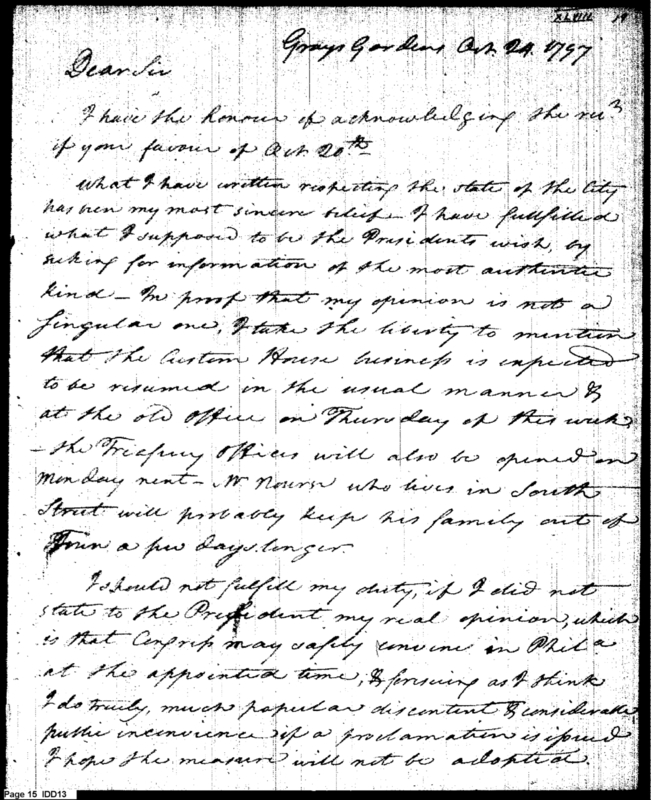 XLVIII 19
Grays Gardens Oct. 24. 1797
Dear Sir
I have the honour of acknowledging the
if your favour of Oct. 20th
What I have written respecting the state of the City
has been my most sincere belief - I have fullfilled
what I supposed to be the Presidents wish, by
seeking for information of the most authentic
kind - In proof that my opinion is not a
Singular one, I take the liberty to mention
that the Custom House business is expected
to be resumed in the usual manner &
at the old office on Thursday of this week
- the Treasury offices will also be opened on
Monday next - Mr Nourse who lives in South
Street will probably keep his family out of
Town a few days longer.
I should not fulfill my duty, if I did not
state to the President my real opinion, which
is that Congress may safely convene in Phila
at the appointed time, & foreseeing as I think
I do truly, much popular discontent & considerable
public inconvience if a proclamation is issued
I hope the measure will not be adopted.
Page 15 IDD13